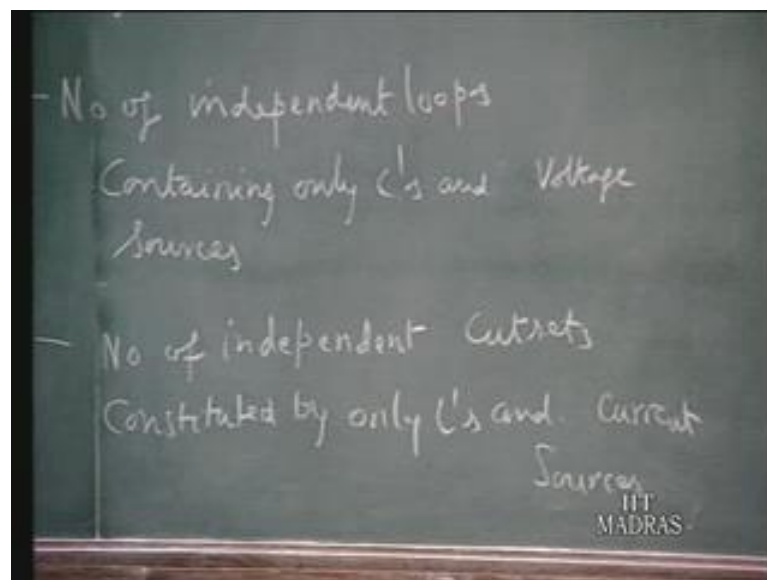 - No of independent loops
Containing only C's and Voltage
Sources
- No of independent Cutsets
Constituted by only L's and Current
Sources
IIT
MADRAS